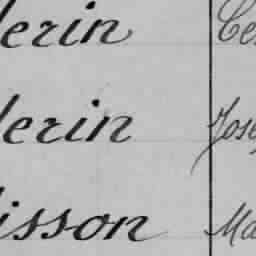 lerin Ce
lerin Jose
isson Ma